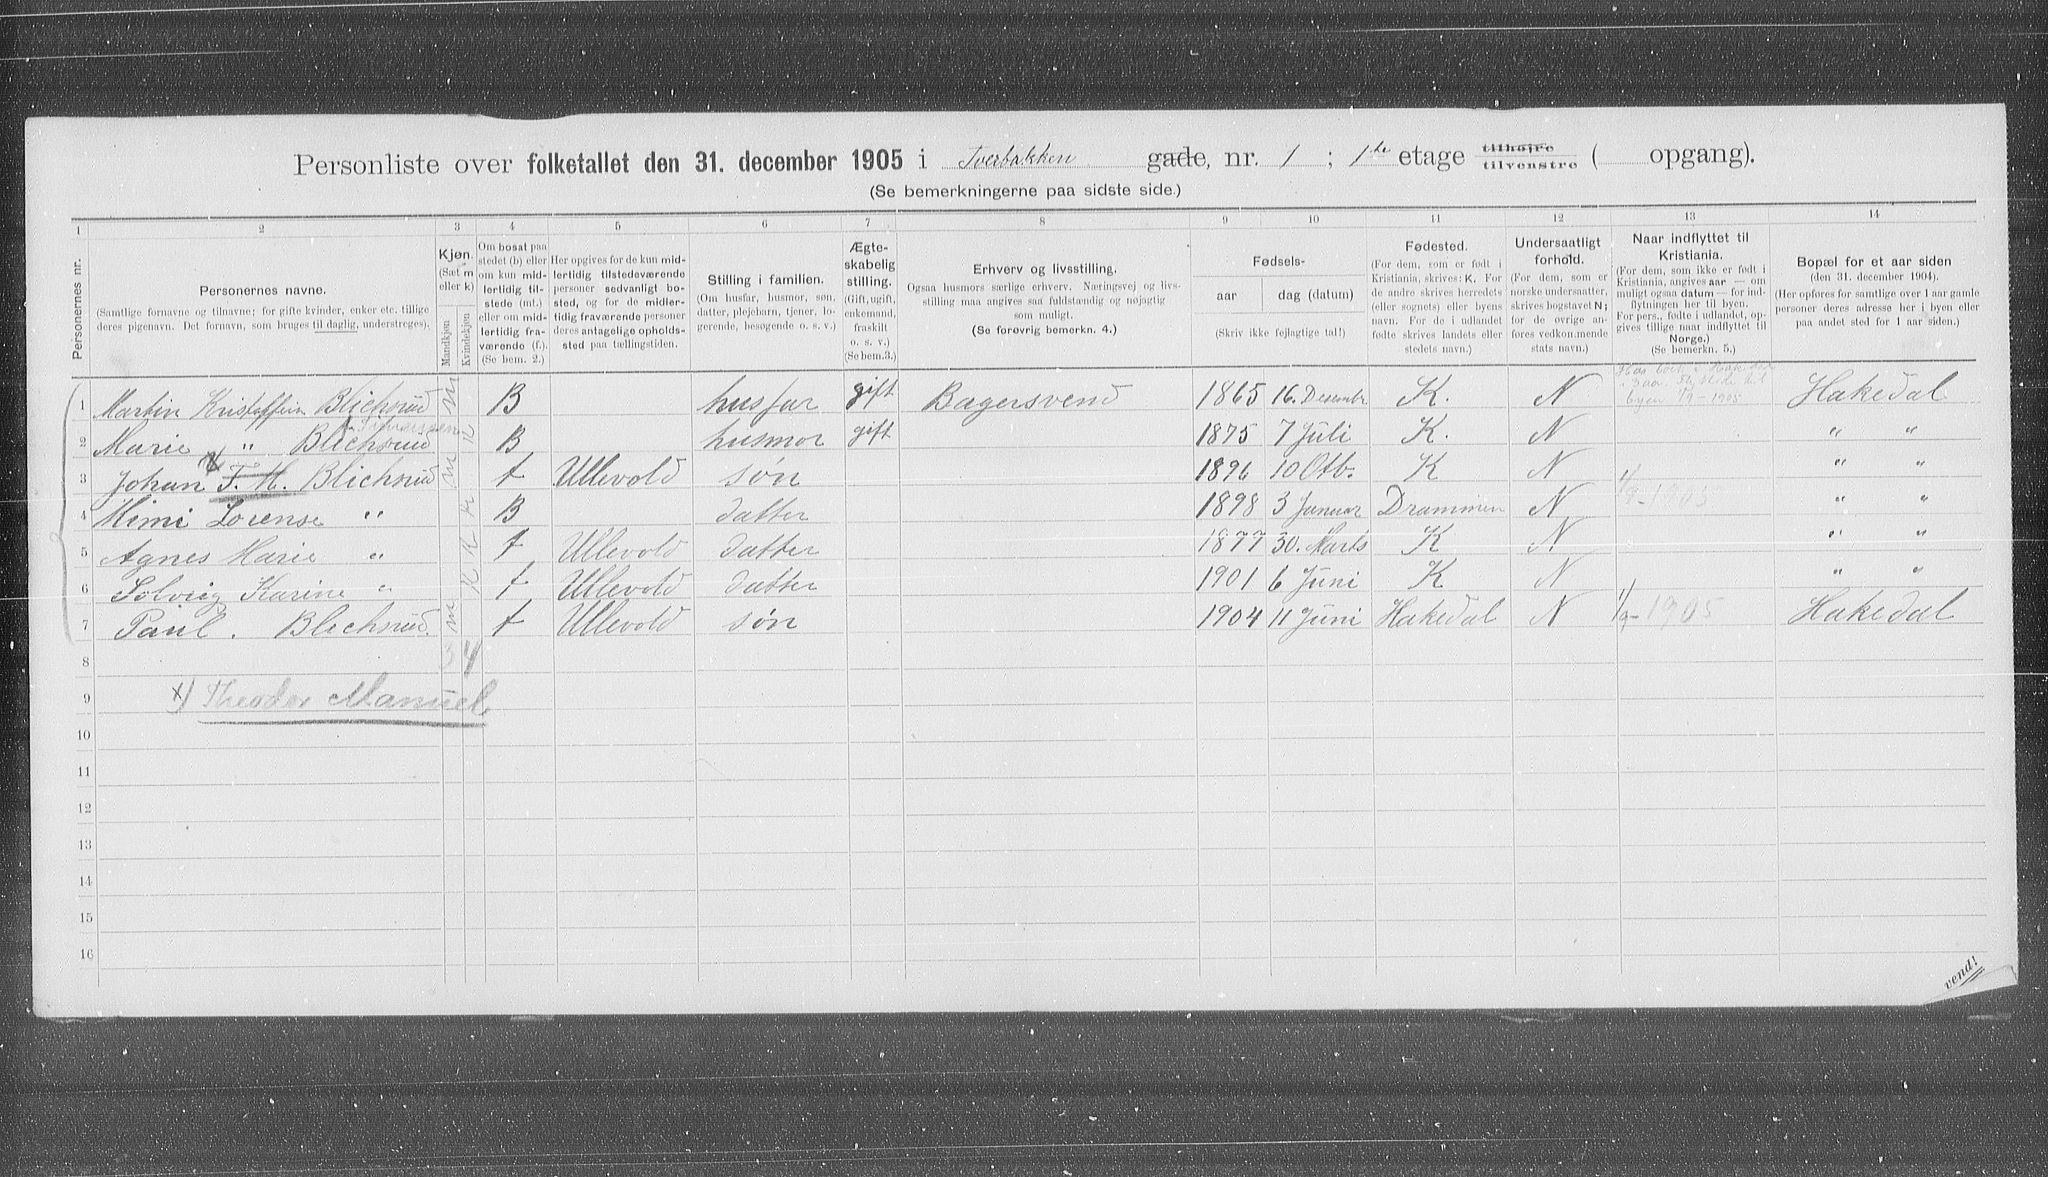 Personliste over folketallet den 31. december 1905 i Tverbakken gade, nr. 1 ; 1ste etage tilhøjre tilvenstre ( opgang).
(Se bemerkningerne paa sidste side.)
1 2 3 4 5 6 7 8 9 10 11 12 13 14
Personernes nr.
Personernes navne.
(Samtlige fornavne og tilnavne; for gifte kvinder, enker etc. tillige
deres pigenavn. Det fornavn, som bruges til daglig, understreges).
Kjøn.
(Sæt m
eller k)
Mandkjøn
Kvindekjøn
Om bosat paa
stedet (b) eller
om kun mid-
lertidig til-
stede (mt.)
eller om mid-
lertidig fra-
værende (f.).
(Se bem. 2.)
Her opgives for de kun mid-
lertidig tilstedeværende
personer sedvanligt bo-
sted, og for de midler-
tidig fraværende personer
deres antagelige opholds-
sted paa tællingstiden.
Stilling i familien.
(Om husfar, husmor, søn,
datter, plejebarn, tjener, lo-
gerende, besøgende o. s. v.)
Ægte-
skabelig
stilling.
(Gift, ugift,
enkemand,
fraskilt
o. s. v.)
(Se bem.3.)
Erhverv og livsstilling.
Ogsaa husmors særlige erhverv. Næringsvej og livs-
stilling maa angives saa fuldstændig og nøjagtig
som muligt.
(Se forøvrig bemerkn. 4.)
Fødsels-
aar dag (datum)
(Skriv ikke fejlagtige tal!)
Fødested.
(For dem, som er født i
Kristiania, skrives: K. For
de andre skrives herredets
(eller sognets) eller byens
navn. For de i udlandet
fødte skrives landets eller
stedets navn.)
Undersaatligt
forhold.
(For dem, som er
norske undersaatter,
skrives bogstavet N;
for de øvrige an-
føres vedkommende
stats navn.)
Naar indflyttet til
Kristiania.
(For dem, som ikke er født i
Kristiania, angives aar — om
muligt ogsaa datum — for ind-
flytningen her til byen.
For pers., fødte i udlandet, op-
gives tillige naar indflyttet til
Norge.)
(Se bemerkn. 5.)
Bopæl for et aar siden
(den 31. december 1904).
(Her opføres for samtlige over 1 aar gamle
personer deres adresse her i byen eller
paa andet sted for 1 aar siden.)
1 Martin Kristoffersen Blichsrud m B husfar gift Bagersvend 1865 16. Desembr K. N byen 1/9-1905 Hakedal
2 Marie " Blichsrud K B husmor gift 1875 7 Juli K. N " "
3 Johan x) T. M. Blichsrud m f Ullevold søn 1896 10 Otb. K N " "
4 Mimi Lorense " K B datter 1898 3 Januar Drammen N 1/9-1905 " "
5 Agnes Marie " K f Ullevold datter 1877 30. Marts K N " "
6 Solvig Karine " K f Ullevold datter 1901 6 Juni K N " "
7 Paul. Blichsrud. m f Ullevold søn 1904 11 Juni Hakedal N 1/9-1905 Hakedal
8 3 4
9 x) Theodor Manuel
10
11
12
13
14
15
16
vend!